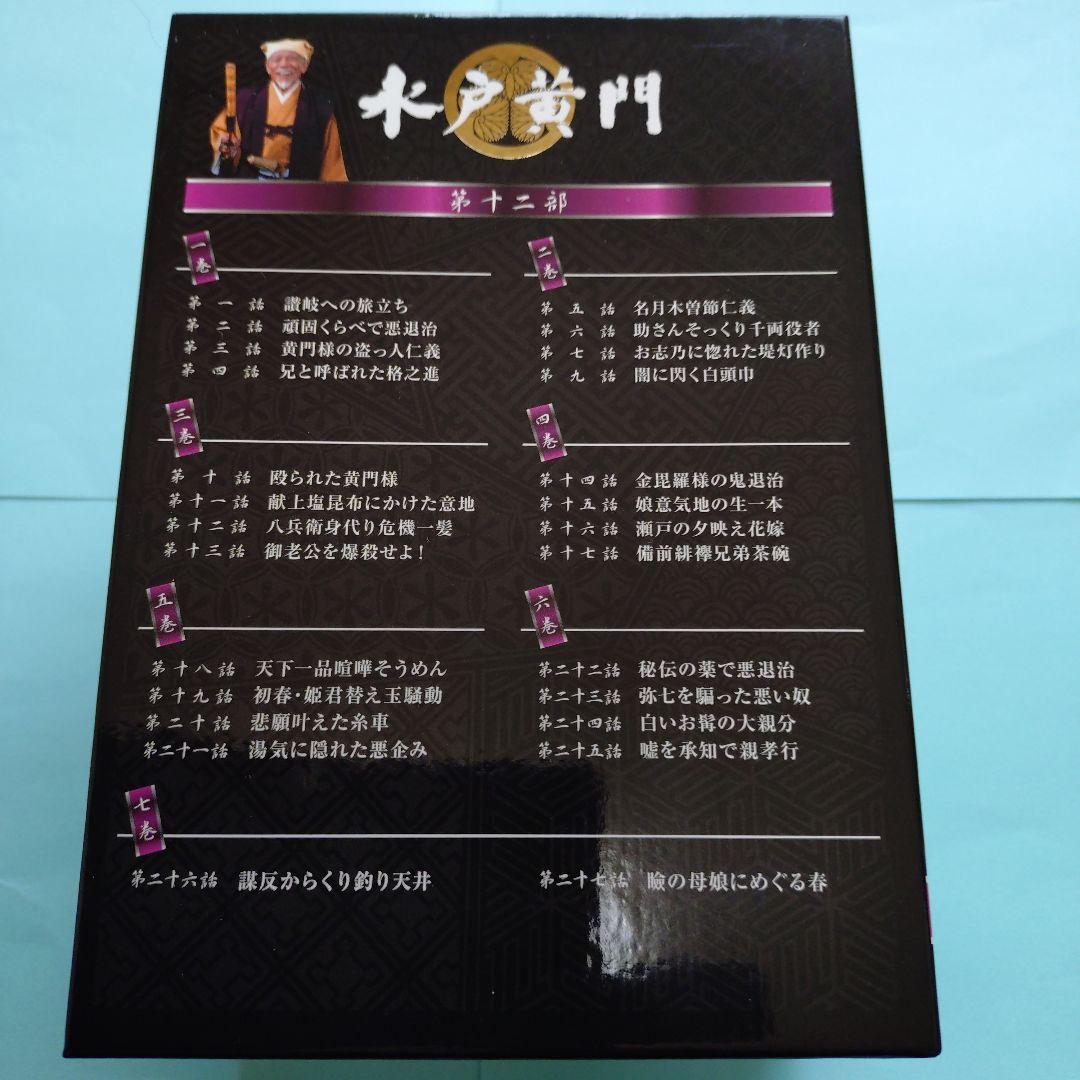 水戸黄門
第十二部
一巻
第一話 讃岐への旅立ち
第二話 頑固くらべで悪退治
第三話 黄門様の盗っ人仁義
第四話 兄と呼ばれた格之進
二巻
第五話 名月木曽節仁義
第六話 助さんそっくり千両役者
第七話 お志乃に惚れた堤灯作り
第九話 闇に閃く白頭巾
三巻
第十話 殴られた黄門様
第十一話 献上塩昆布にかけた意地
第十二話 八兵衛身代り危機一髪
第十三話 御老公を爆殺せよ!
四巻
第十四話 金毘羅様の鬼退治
第十五話 娘意気地の生一本
第十六話 瀬戸の夕映え花嫁
第十七話 備前緋襷兄弟茶碗
五巻
第十八話 天下一品喧嘩そうめん
第十九話 初春・姫君替え玉騒動
第二十話 悲願叶えた糸車
第二十一話 湯気に隠れた悪企み
六巻
第二十二話 秘伝の薬で悪退治
第二十三話 弥七を騙った悪い奴
第二十四話 白いお髯の大親分
第二十五話 嘘を承知で親孝行
七巻
第二十六話 謀反からくり釣り天井
第二十七話 瞼の母娘にめぐる春